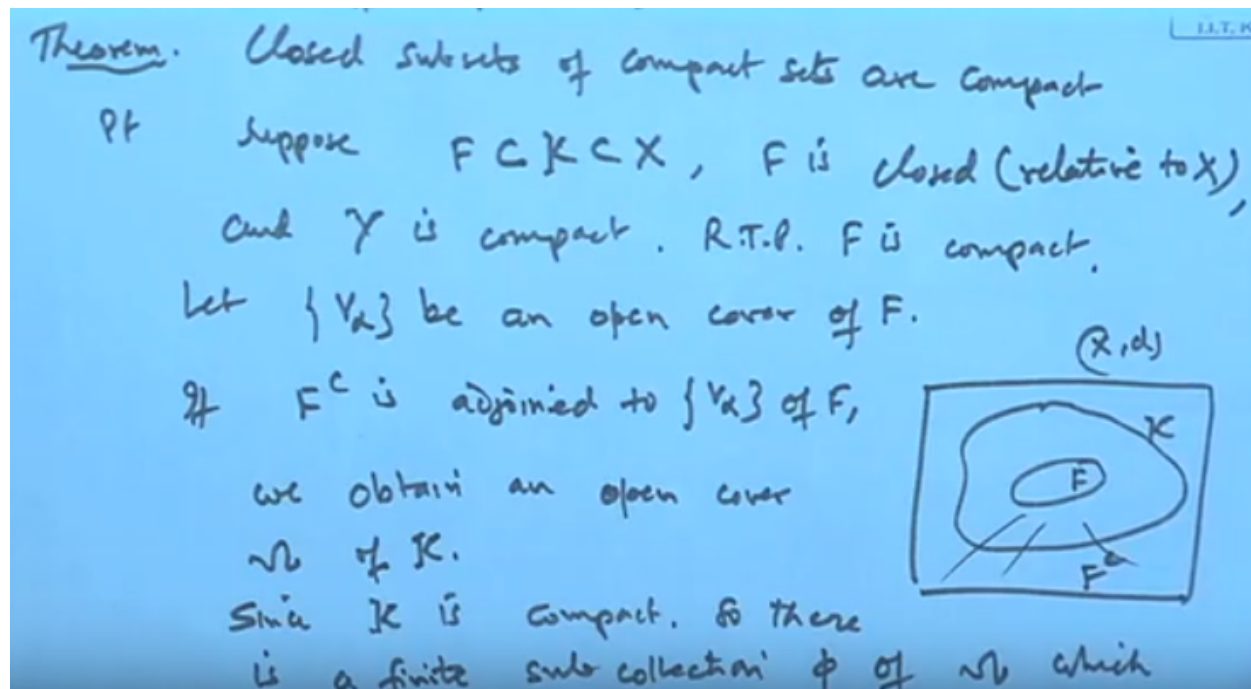 Theorem. Closed subsets of compact sets are compact
Pf Suppose F ⊂ K ⊂ X, F is closed (relative to X),
and Y is compact. R.T.P. F is compact.
Let {Vα} be an open cover of F.
(X,d)
If F^c is adjoinied to {Vα} of F,
K
we obtain an open cover
F
Ω of K.
F^c
Since K is compact. So there
is a finite sub collection φ of Ω which
I.I.T. K